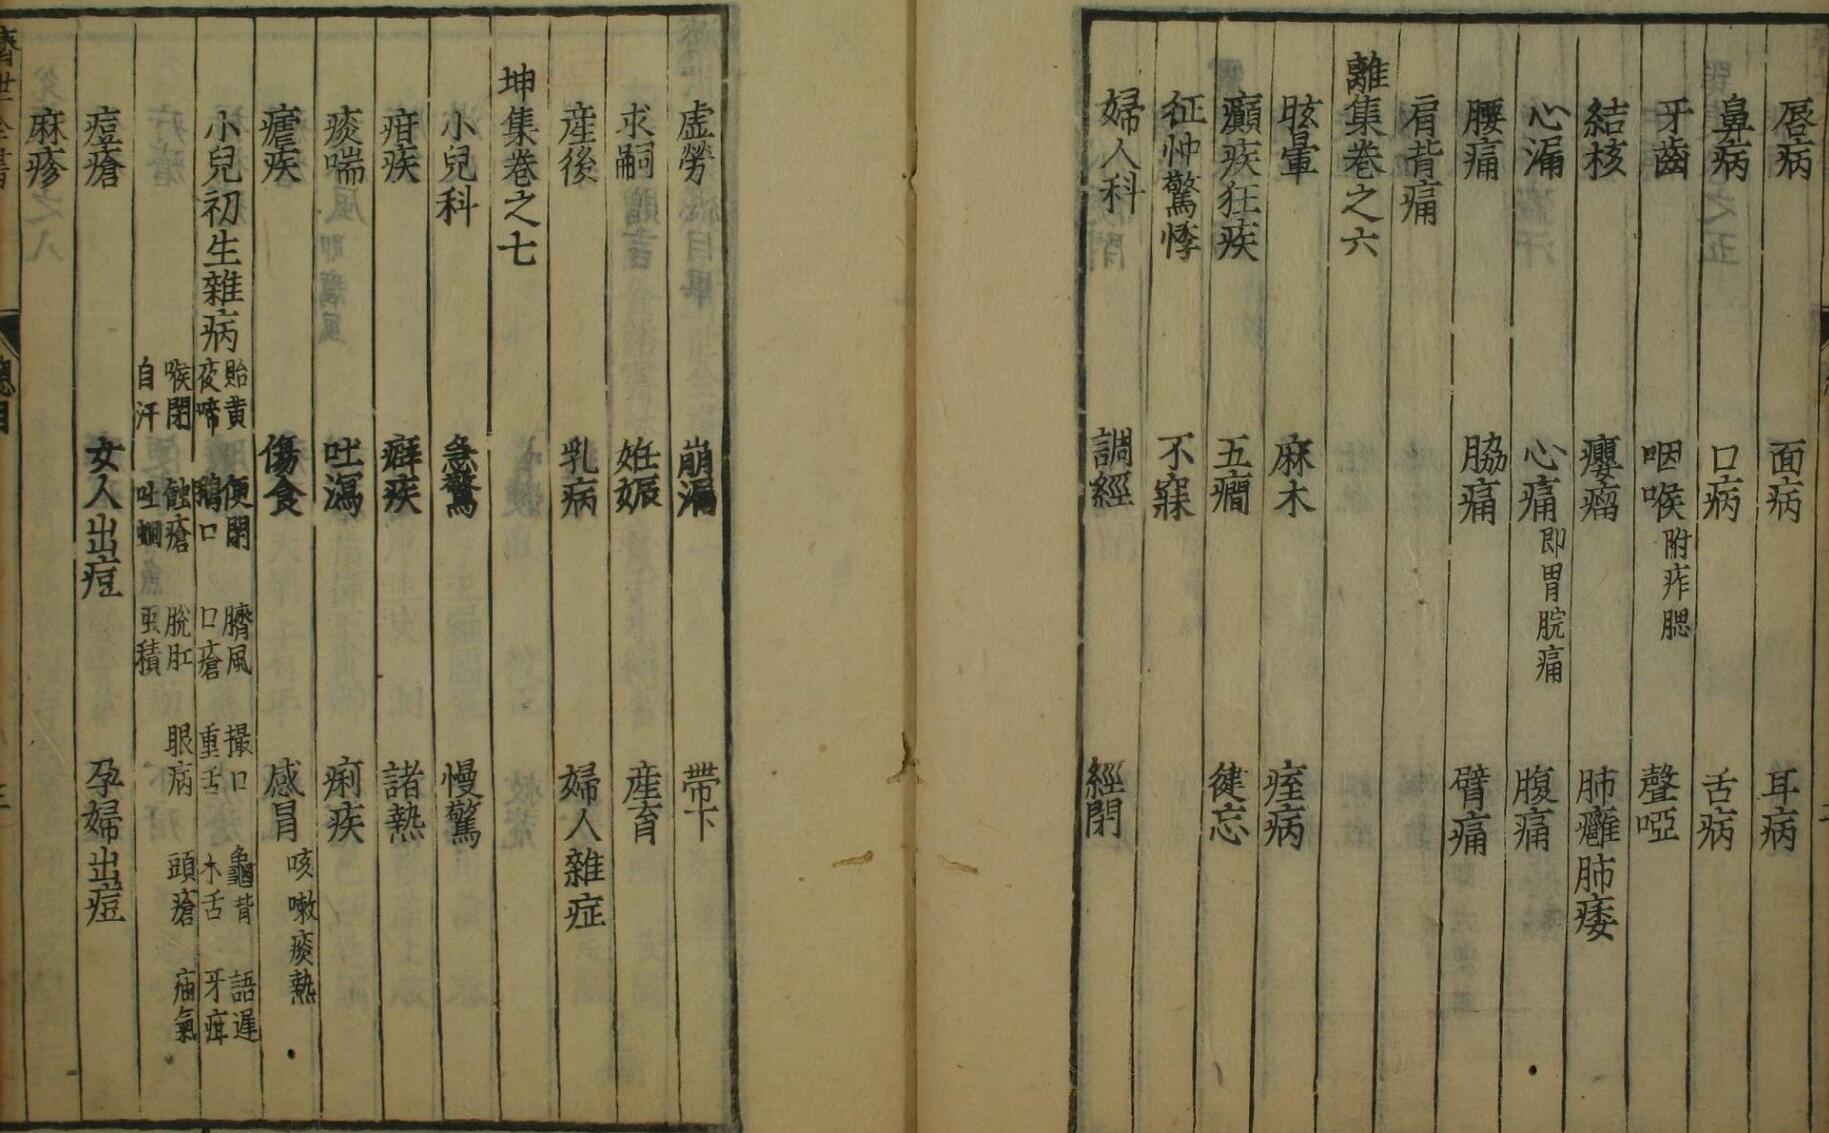 唇病 面病 耳病
鼻病 口病 舌病
牙齒 咽喉附痄腮 聲啞
結核 癭瘤 肺癰肺痿
心漏 心痛即胃脘痛 腹痛
腰痛 脇痛 臂痛
肩背痛
離集巻之六
眩暈 麻木 痓病
癲疾狂疾 五癇 健忘
怔忡驚悸 不寐
婦人科 調經 經閉
虚勞 崩漏 帶下
求嗣 妊娠 産育
産後 乳病 婦人雜症
坤集巻之七
小兒科 急驚 慢驚
疳疾 癖疾 諸熱
痰喘 吐瀉 痢疾
瘧疾 傷食 感冒咳嗽痰熱
小兒初生雜病 胎黄 便閉 臍風 撮口 龜背 語遲
夜啼 鵝口 口瘡 重舌 木舌 牙疳
喉閉 蝕瘡 脫肛 眼病 頭瘡 疝氣
自汗 吐蛔 虫積
痘瘡 女人出痘 孕婦出痘
麻疹
濟世全書 總目